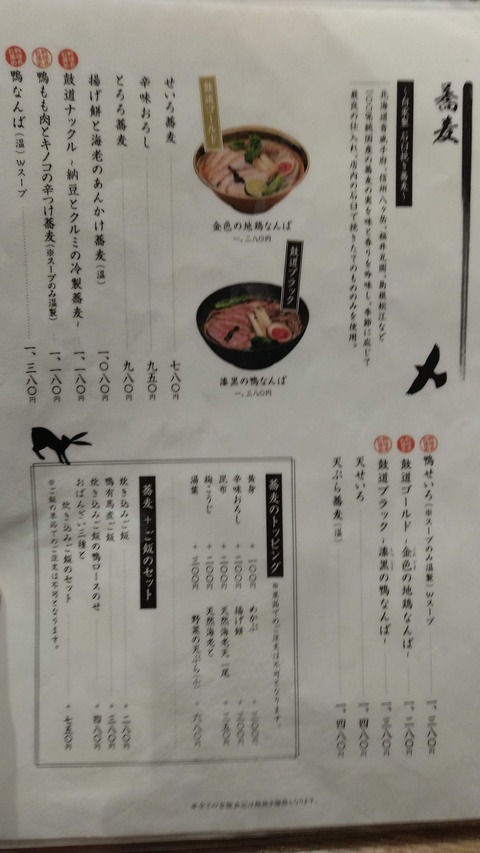 蕎麦
～自家製 石臼挽き蕎麦～
北海道音威子府、信州八ヶ岳、福井丸岡、島根松江など
一〇〇％純国産の蕎麦の実を味と香りを吟味し、季節に応じて
最良の仕入れ。店内の石臼で挽きたてのもののみを使用。
鼓道ゴールド
金色の地鶏なんば
一、二八〇円
鼓道ブラック
漆黒の鴨なんば
一、三八〇円
せいろ蕎麦 七八〇円
辛味おろし 九五〇円
とろろ蕎麦 九八〇円
揚げ餅と海老のあんかけ蕎麦（温） 一、〇八〇円
鼓道ナックル ～納豆とクルミの冷製蕎麦～ 一、一八〇円
鴨もも肉とキノコの辛つけ蕎麦（※スープのみ温製） 一、一八〇円
鴨なんば（温）Wスープ 一、三八〇円
鴨せいろ（※スープのみ温製）Wスープ 一、三八〇円
鼓道ゴールド ～金色の地鶏なんば～ 一、二八〇円
鼓道ブラック ～漆黒の鴨なんば～ 一、三八〇円
天せいろ 一、四八〇円
天ぷら蕎麦（温） 一、四八〇円
蕎麦のトッピング
※単品でのご注文は不可となります。
黄身 ＋一〇〇円
辛味おろし ＋二〇〇円
昆布 ＋二〇〇円
梅こうじ ＋二〇〇円
湯葉 ＋三〇〇円
めかぶ ＋三〇〇円
揚げ餅 ＋三〇〇円
天然海老天一尾 ＋三五〇円
天然海老と
野菜の天ぷら ＋六八〇円
蕎麦＋ご飯のセット
炊き込みご飯 ＋二八〇円
鴨有馬煮ご飯 ＋三八〇円
炊き込みご飯の鴨ロースのせ ＋四八〇円
おばんざい三種と
炊き込みご飯のセット ＋七五〇円
※ご飯の単品でのご注文は不可となります。